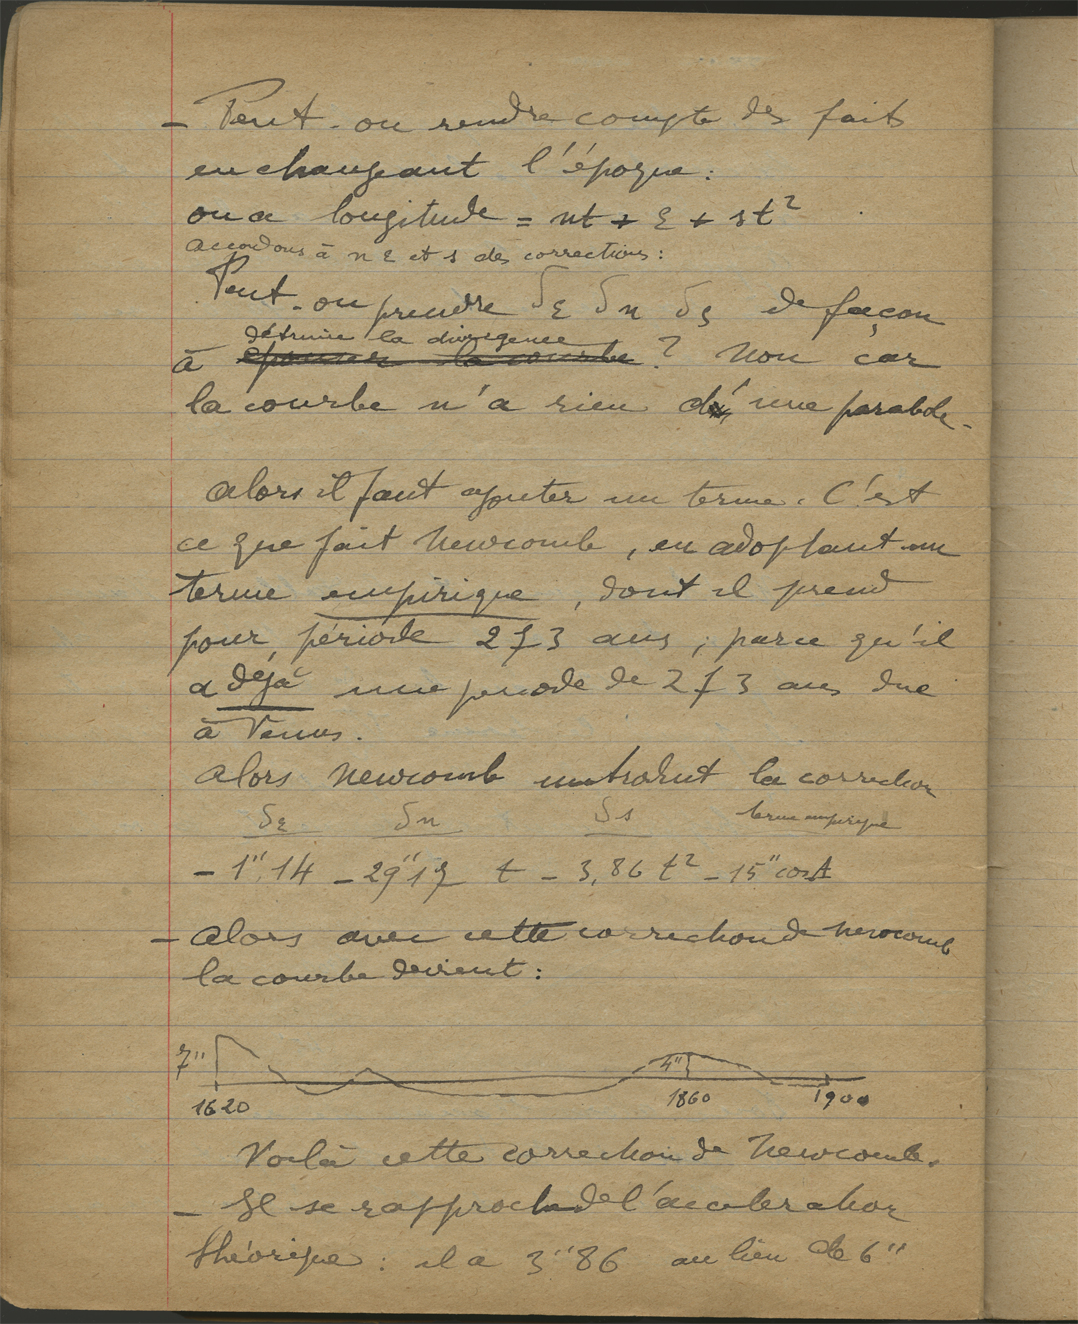 - Peut-on rendre compte des faits
en changeant l'époque :
on a longitude = nt + ε + st²
accordons à n ε et s des corrections :
Peut-on prendre δε δn δs de façon
détruire la divergence
à épouser la courbe ? Non car
la courbe n'a rien d' une parabole.
Alors il faut ajouter un terme. C'est
ce que fait Newcomb, en adoptant un
terme empirique, dont il prend
pour période 273 ans, parce qu'il
a déjà une période de 273 ans due
à Vénus.
Alors Newcomb introduit la correction
δε δn δs terme empirique
- 1",14 - 29"17 t - 3,86 t² - 15" cos A
- Alors avec cette correction de Newcomb
la courbe devient :
7" 4"
1620 1860 1900
Voilà cette correction de Newcomb.
- Il se rapproche de l'accélération
théorique : il a 3"86 au lieu de 6"